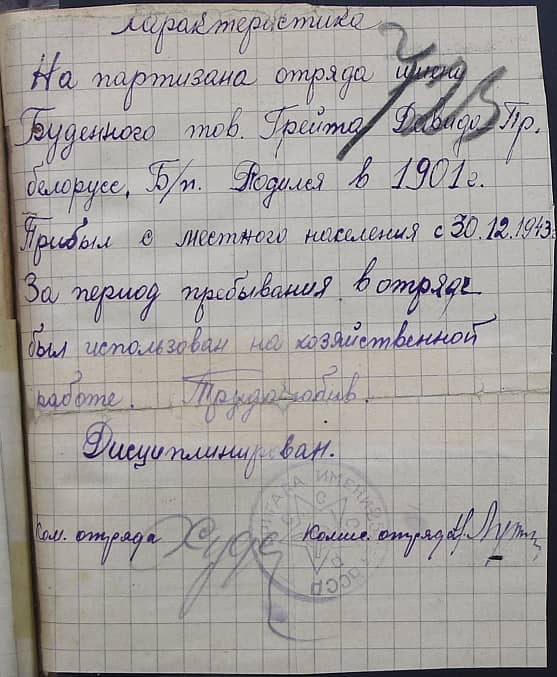 Характеристика
На партизана отряда имени
Буденного тов. Грейта Давида Пр.
белорусс, Б/п. Родился в 1901 г.
Прибыл с местного населения с 30.12.1943
За период пребывания в отряде
был использован на хозяйственной
работе. Трудолюбив.
Дисциплинирован.
Ком. отряда Комис. отряда
ИМЕНИ
СССР
БССР